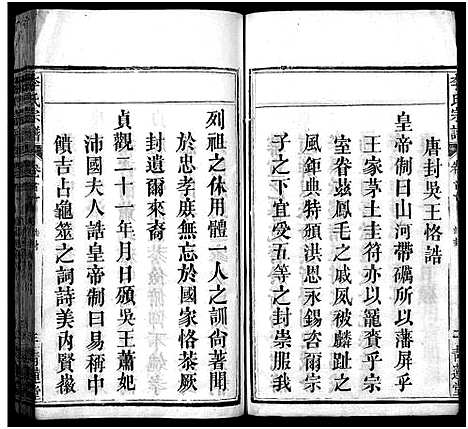 李氏宗譜
唐封吳王恪誥
皇帝制曰山河帶礪所以藩屏乎
王家茅土分封所以寵賚乎
室眷茲鳳毛之戚夙被麟趾之
風鉅典特頒洪恩永錫咨爾宗
子之下宜受五等之封崇服我
列祖之休用體一人之訓尚著聞
於忠孝庶無忘於國家恪茶厥
封遺爾來裔
貞觀二十一年月日頒吳王蕭妃
沛國夫人誥皇帝制曰
饋吉占龜筮之詞詩美內賢徽
李氏宗譜